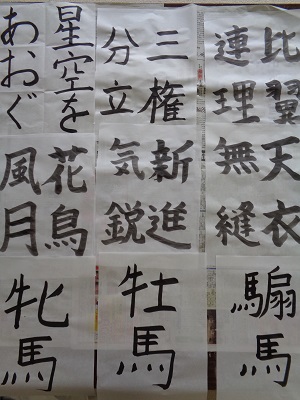 比翼
連理
三権
分立
星空を
あおぐ
天衣
無縫
新進
気鋭
花鳥
風月
騸馬
牡馬
牝馬